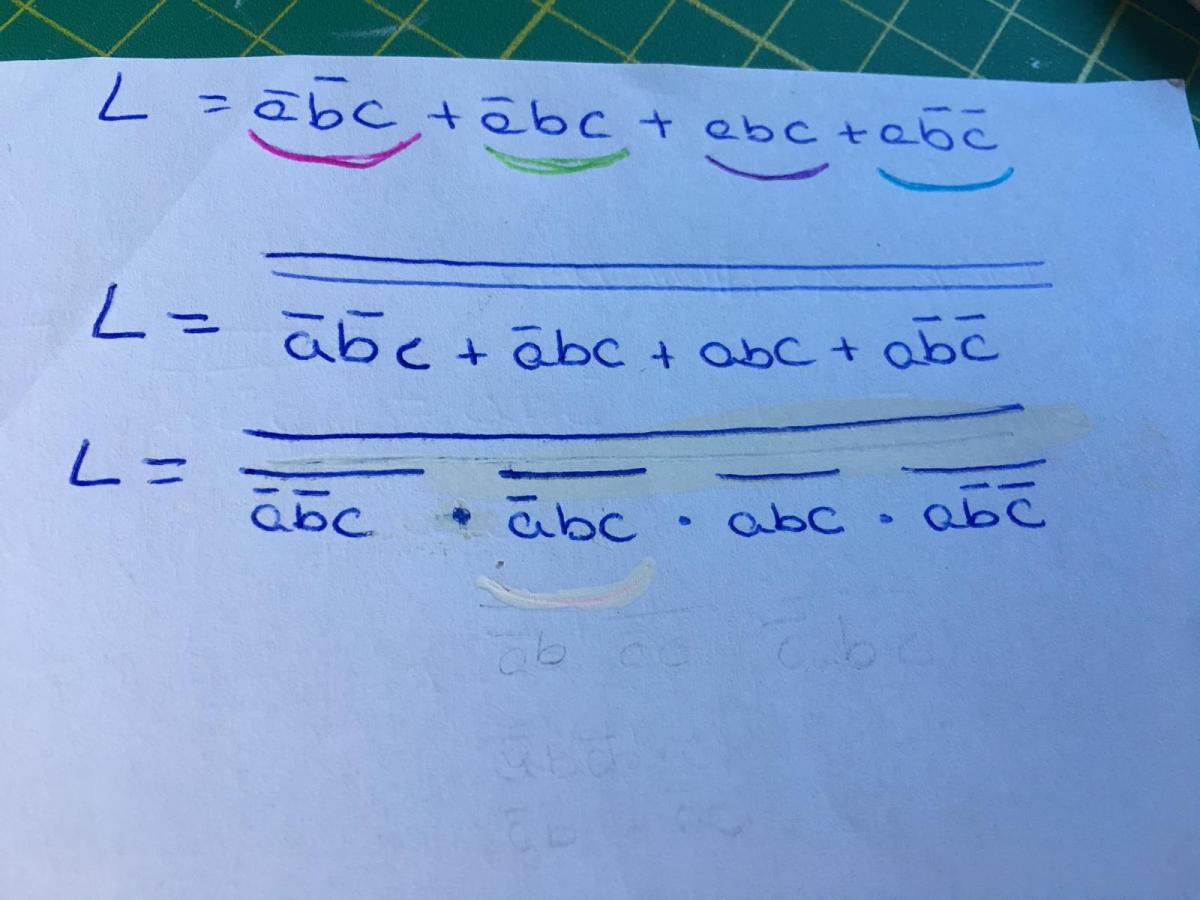 L = a̅b̅c + a̅bc + abc + ab̅c̅
L = a̅b̅c + a̅bc + abc + ab̅c̅
L = a̅b̅c · a̅bc · abc · ab̅c̅